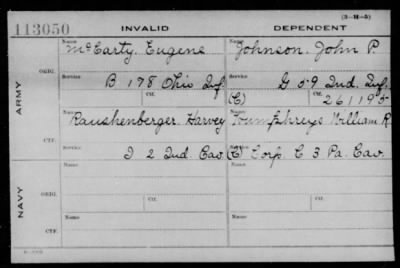 (3-H-5)
113050 INVALID DEPENDENT
Name Name
McCarty, Eugene Johnson, John P.
ORIG. Service Service
B 178 Ohio Inf. G 59 Ind. Inf.
Ctf. (C) Ctf. 261195
ARMY
Name Name
Raushenberger, Harvey Humphreys William R
CTF. Service Service
I 2 Ind. Cav (C) Corp. C 3 Pa. Cav.
Name Name
ORIG. Service Ctf. Service Ctf.
NAVY
Name Name
CTF. Service Service